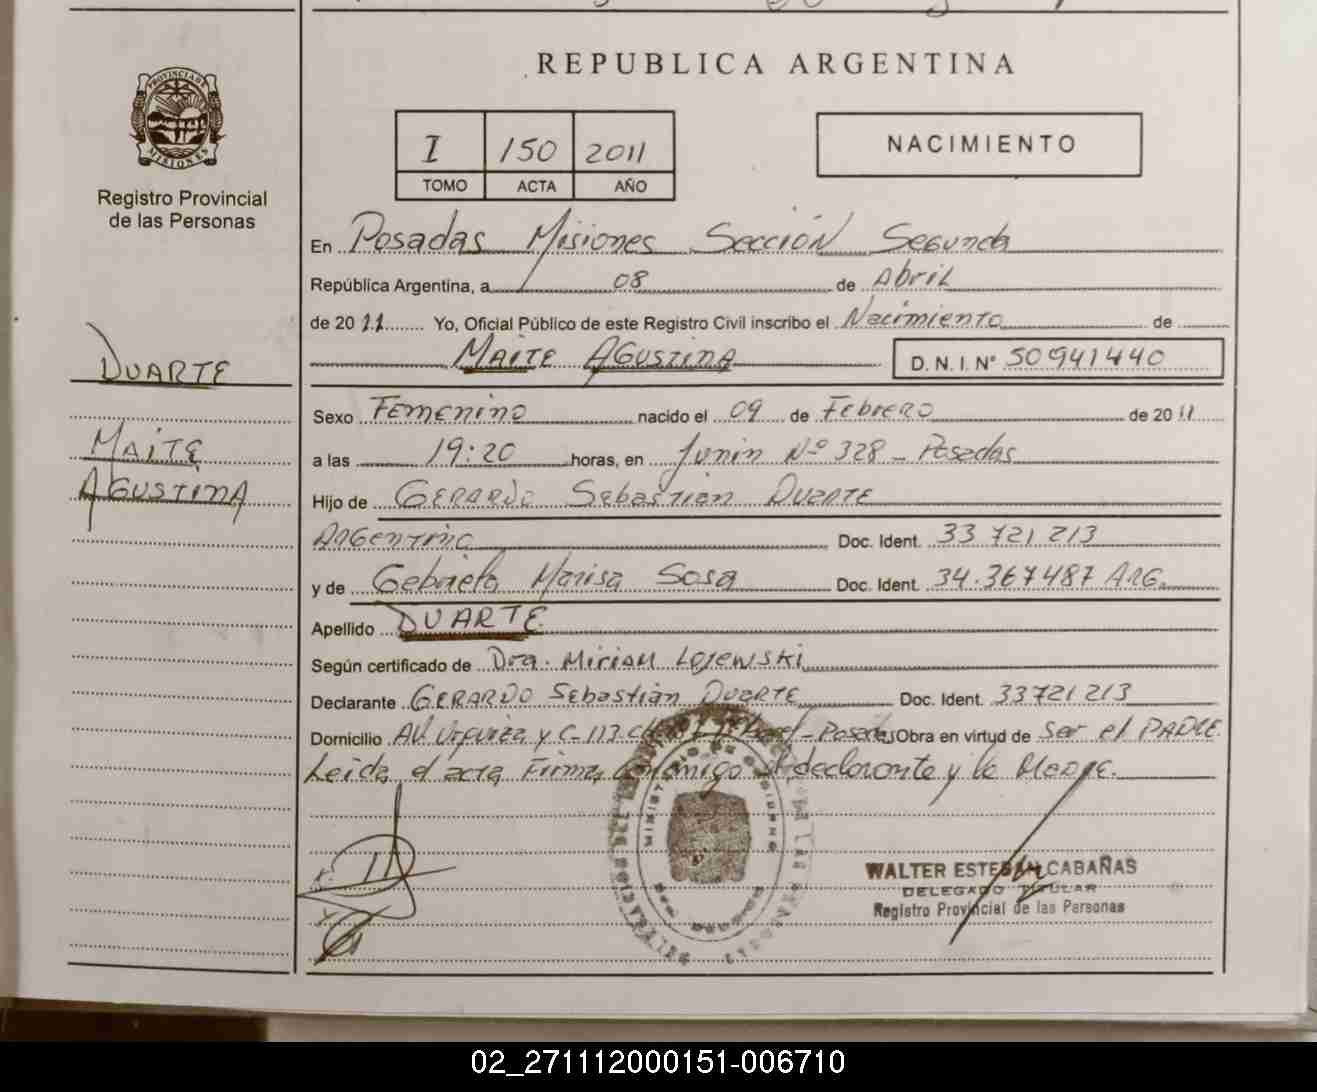 REPUBLICA ARGENTINA
PROVINCIA DE
MISIONES
Registro Provincial
de las Personas
I 150 2011
TOMO ACTA AÑO
NACIMIENTO
En Posadas Misiones Sección Segunda
República Argentina, a 08 de Abril
de 2011 Yo, Oficial Público de este Registro Civil inscribo el Nacimiento de
MAITE AGUSTINA D.N.I Nº 50941440
DUARTE
MAITE
AGUSTINA
Sexo Femenino nacido el 09 de Febrero de 2011
a las 19:20 horas, en Junin Nº 328 - Posadas
Hijo de GERARDO Sebastian DUARTE
Argentino Doc. Ident. 33 721 213
y de Gabriela Marisa Sosa Doc. Ident. 34.367487 ARG.
Apellido DUARTE
Según certificado de Dra. Miriam Lojewski
Declarante GERARDO Sebastián DUARTE Doc. Ident. 33721213
Domicilio AV. Urquiza y C-113 Posadas Obra en virtud de ser el PADRE.
Leida el acta Firma conmigo el declarante y la Madre.
MINISTERIO DE GOBIERNO
WALTER ESTEBAN CABAÑAS
DELEGADO TITULAR
Registro Provincial de las Personas
02_271112000151-006710